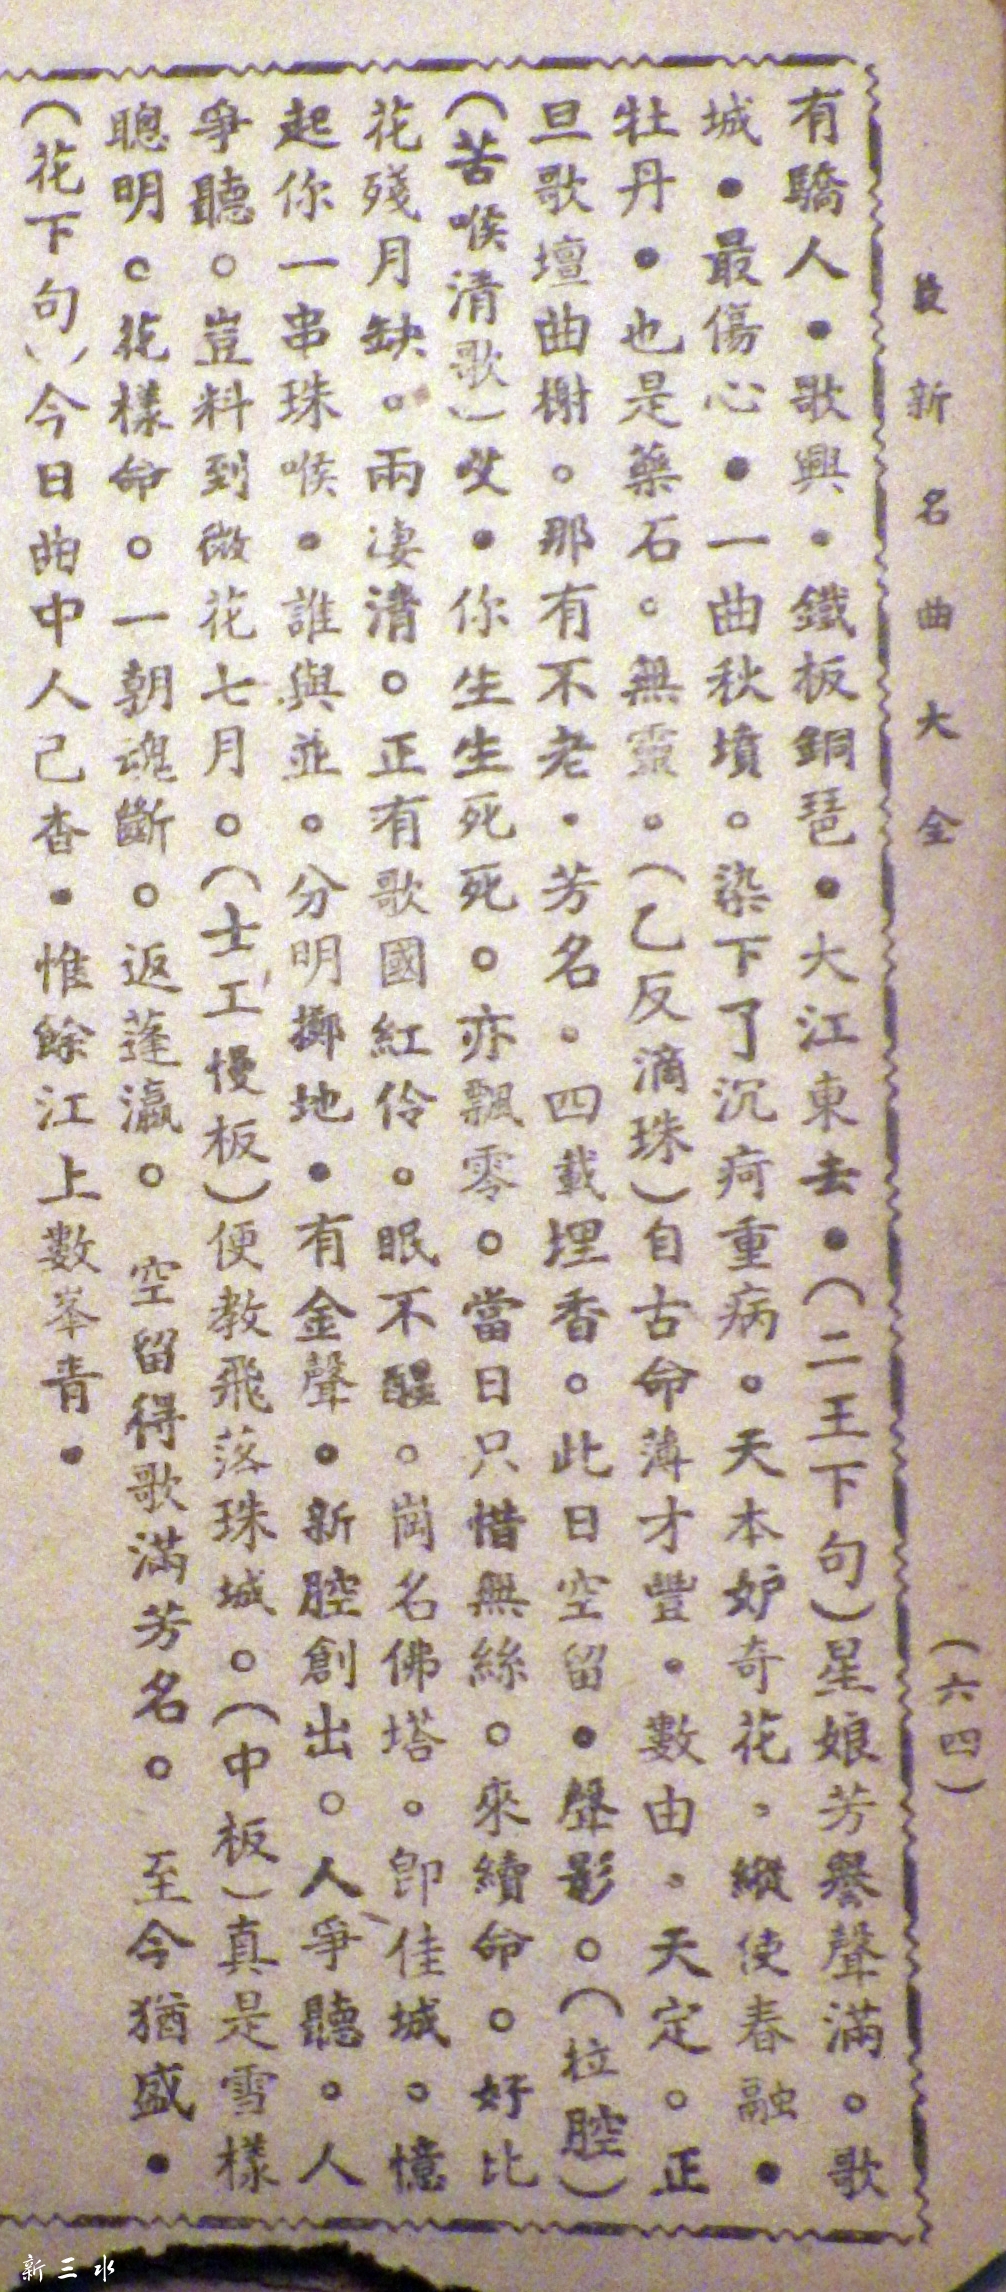 最新名曲大全
(六四)
有驕人•歌興•鐵板銅琶•大江東去•(二王下句)星娘芳譽聲滿。歌
城•最傷心•一曲秋墳。染下了沉疴重病。天本妒奇花。縱使春融•
牡丹•也是藥石。無靈。(乙反滴珠)自古命薄才豐•數由。天定。正
旦歌壇曲榭。那有不老•芳名。四載埋香。此日空留•聲影。(拉腔)
(苦喉清歌)哎•你生生死死。亦飄零。當日只惜無絲。來續命。好比
花殘月缺。兩凄清。正有歌國紅伶。眠不醒。崗名佛塔。卽佳城。憶
起你一串珠喉•誰與並。分明擲地•有金聲•新腔創出。人爭聽。人
爭聽。豈料到微花七月。(士工慢板)便教飛落珠城。(中板)真是雪樣
聰明。花樣命。一朝魂斷。返蓬瀛。空留得歌滿芳名。至今猶盛•
(花下句)今日曲中人已杳•惟餘江上數峯青•
新三水